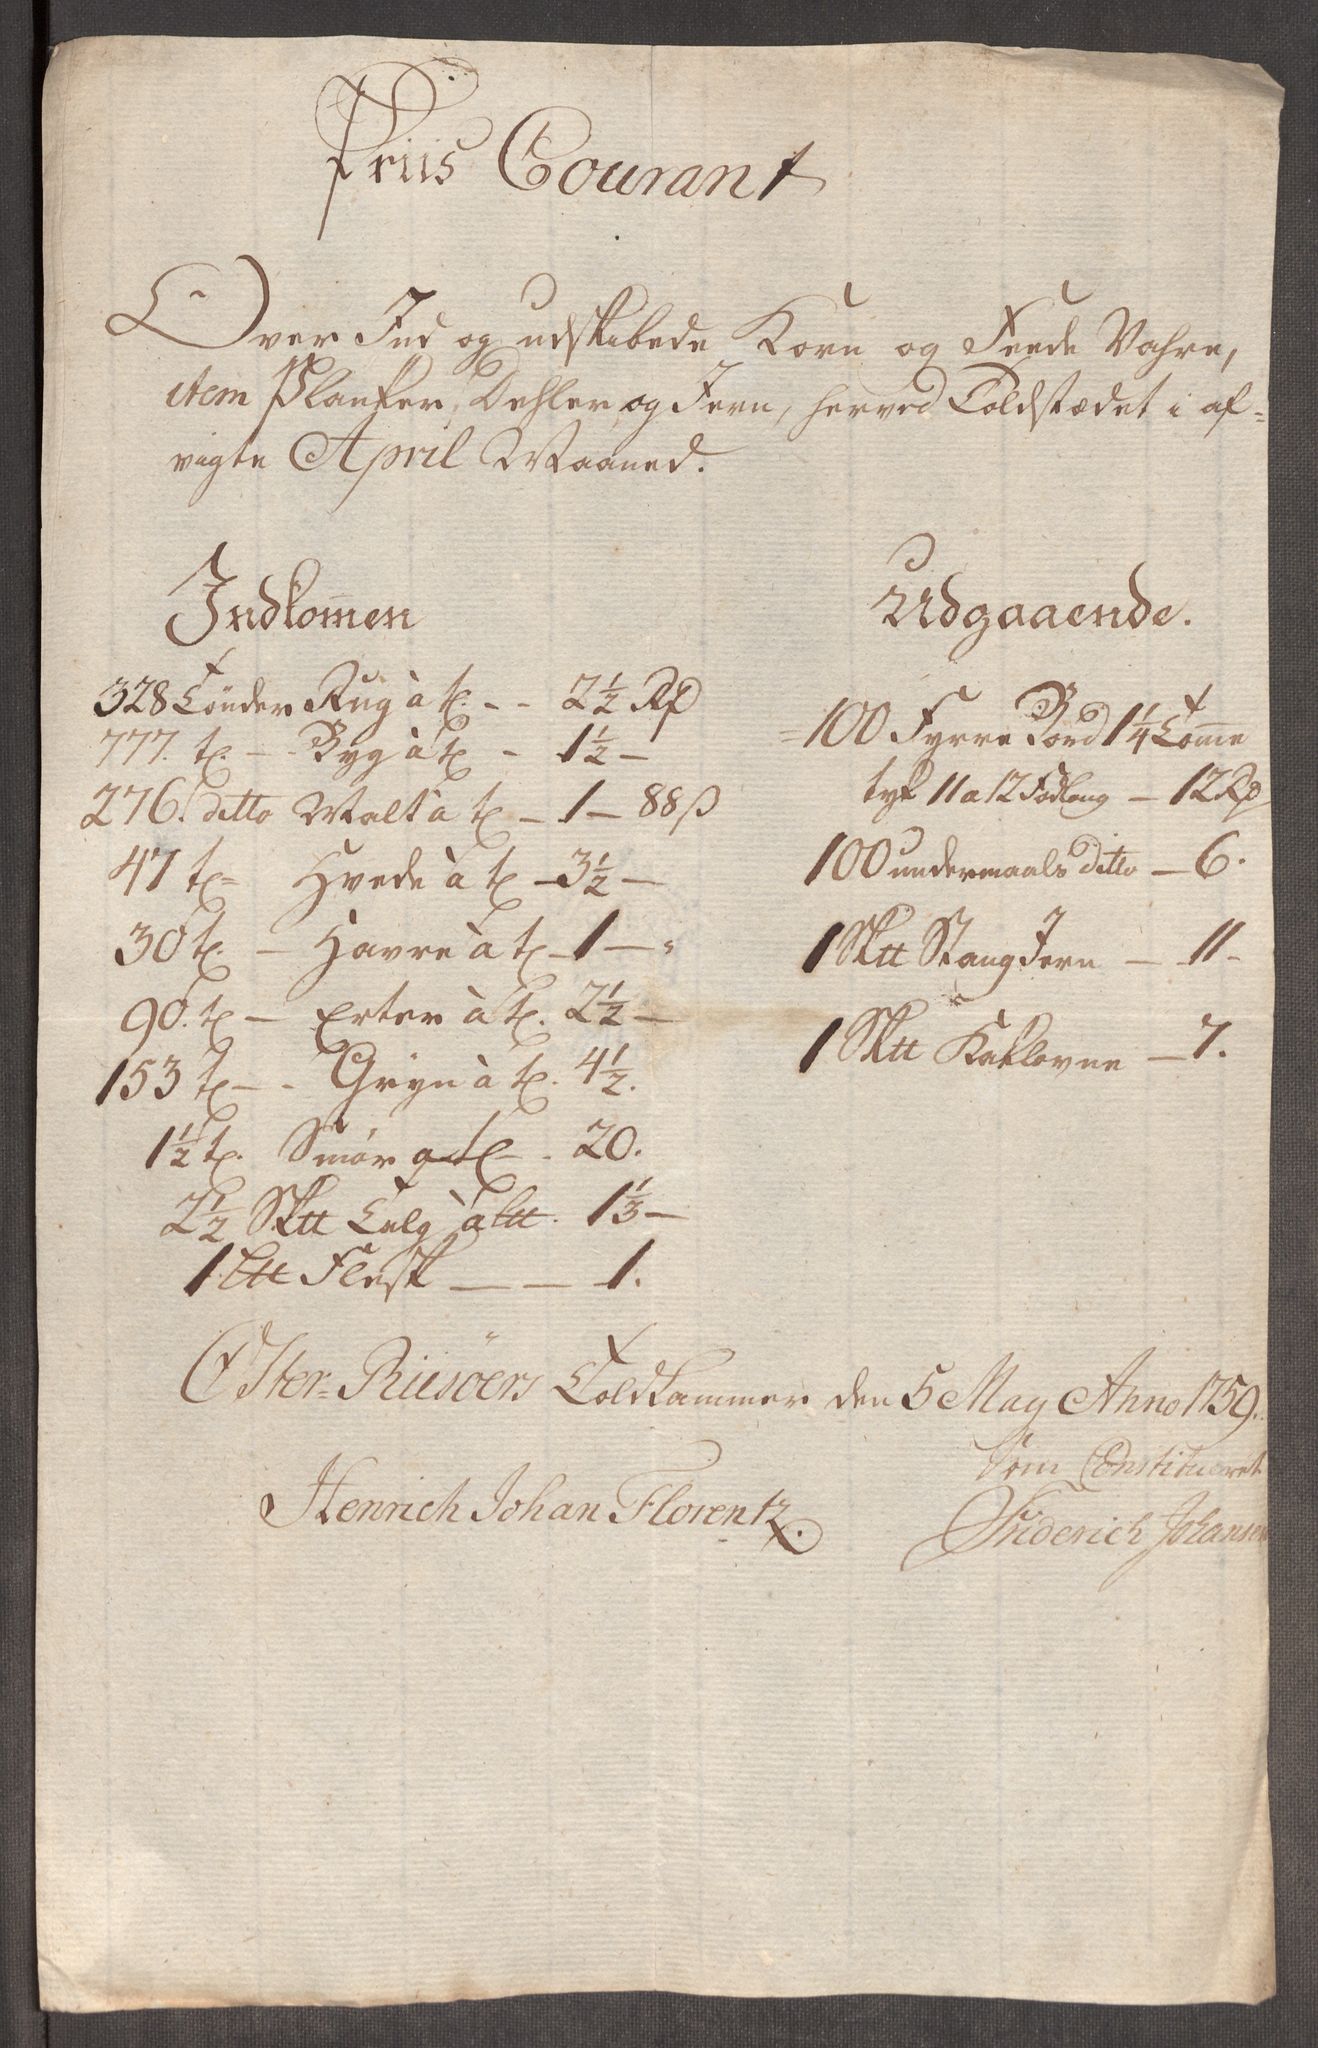 Priis Courant
Over Ind og udskibede Korn og Feede Vahre,
item Planker, Dehler og Jern, herved Toldstædet i af=
vigte April Maaned.
Indkom̄en
328 Tönder Rug à t. - - 2½ Rd
777. t. - Byg à t - 1½ -
276. ditto Malt à t - 1 - 88 ß
47 t= Hvede à t - 3½ -
30 t. - Havre à t - 1 - "
90. t - Erter à t. 2½ -
153 t - - Gryn à t. 4½.
1½ t. Smør a t - 20.
2½ Sktt Talg à Ltt. 1⅓ -
1 Ltt Flesk - - 1.
Udgaaende.
=100 Fyrre Bord 1¼ Tom̄e
tyk 11 a 12 Fod lang - 12 Rd
100 undermaals ditto - 6.
1 Sktt Stang Jern - 11 -
1 Sktt Kaklovne - 7.
Øster=Riisöers Toldkammer den 5 May Anno 1759.
Som Constitueret
Henrich Johan Florentz.
Friderich Johansen